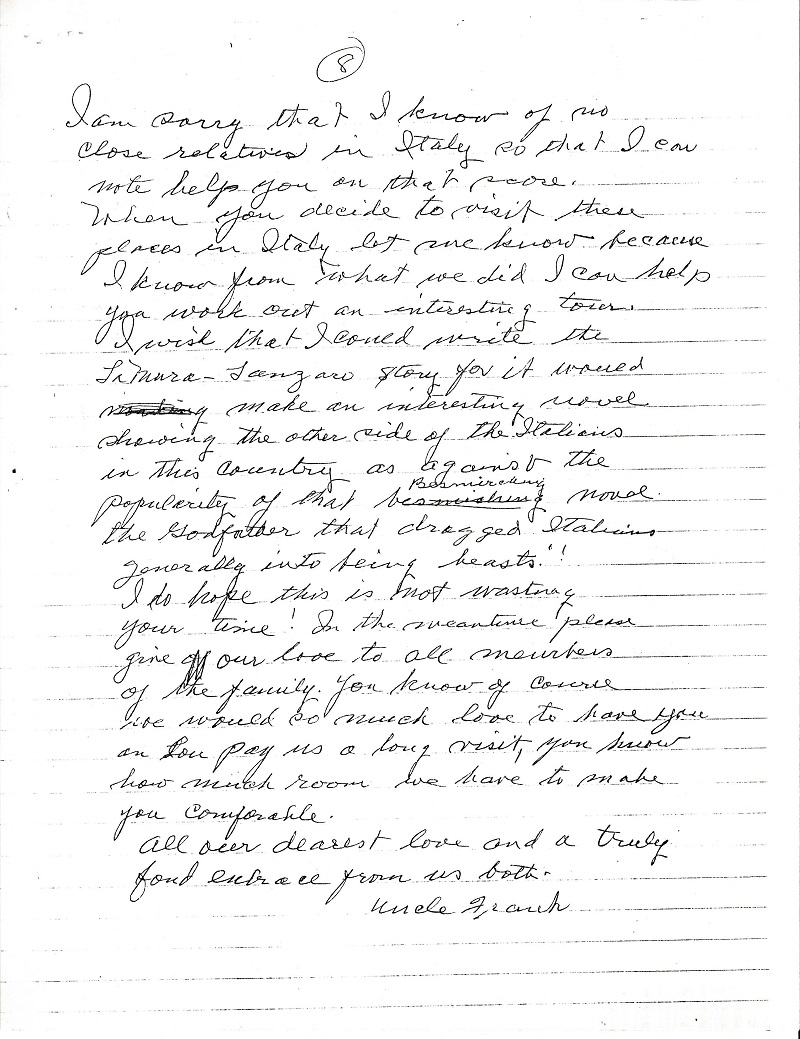 8
I am sorry that I know of no
close relatives in Italy so that I can
note help you on that score.
When you decide to visit these
places in Italy let me know because
I know from what we did I can help
you work out an interesting tour.
I wish that I could write the
LiMura - Sanzaro story for it would
make an interesting novel
showing the other side of the Italians
in this country as against the
Besmerching
popularity of that besmishing novel
the Godfather that dragged Italians
generally into being beasts."!
I do hope this is not wasting
your time! In the meantime please
give our love to all members
of the family. You know of course
we would so much love to have you
an Lou pay us a long visit, you know
how much room we have to make
you comforable.
All our dearest love and a truly
fond enbrace from us both.
Uncle Frank